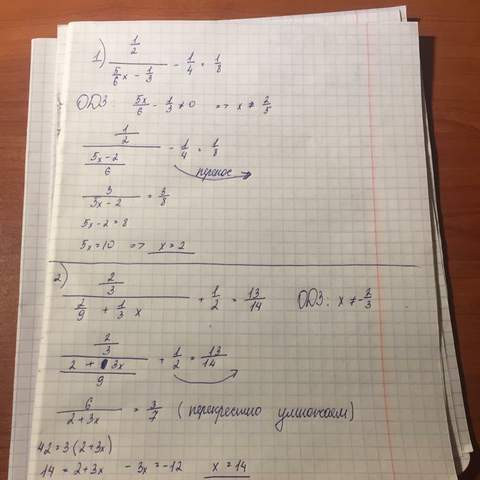 1) (1/2)/(5/6 x - 1/3) - 1/4 = 1/8
ОДЗ: 5x/6 - 1/3 ≠ 0 => x ≠ 2/5
(1/2)/((5x-2)/6) - 1/4 = 1/8
перенос
3/(5x-2) = 3/8
5x-2=8
5x=10 => x=2
2) (2/3)/(2/9 + 1/3 x) + 1/2 = 13/14 ОДЗ: x ≠ -2/3
(2/3)/((2 + 3x)/9) + 1/2 = 13/14
6/(2+3x) = 3/7 (перекрестно умножаем)
42=3(2+3x)
14=2+3x -3x=-12 x=14